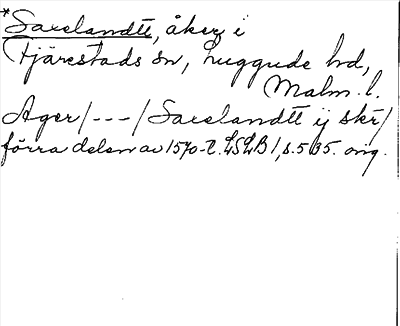 *Saxelandtt, åker i
Fjärestads sn, Luggude hd,
Malm. l.
Ager/---/Saxelandtt ij skr/
förra delen av 1570-t. LSLB 1, s. 535. orig.